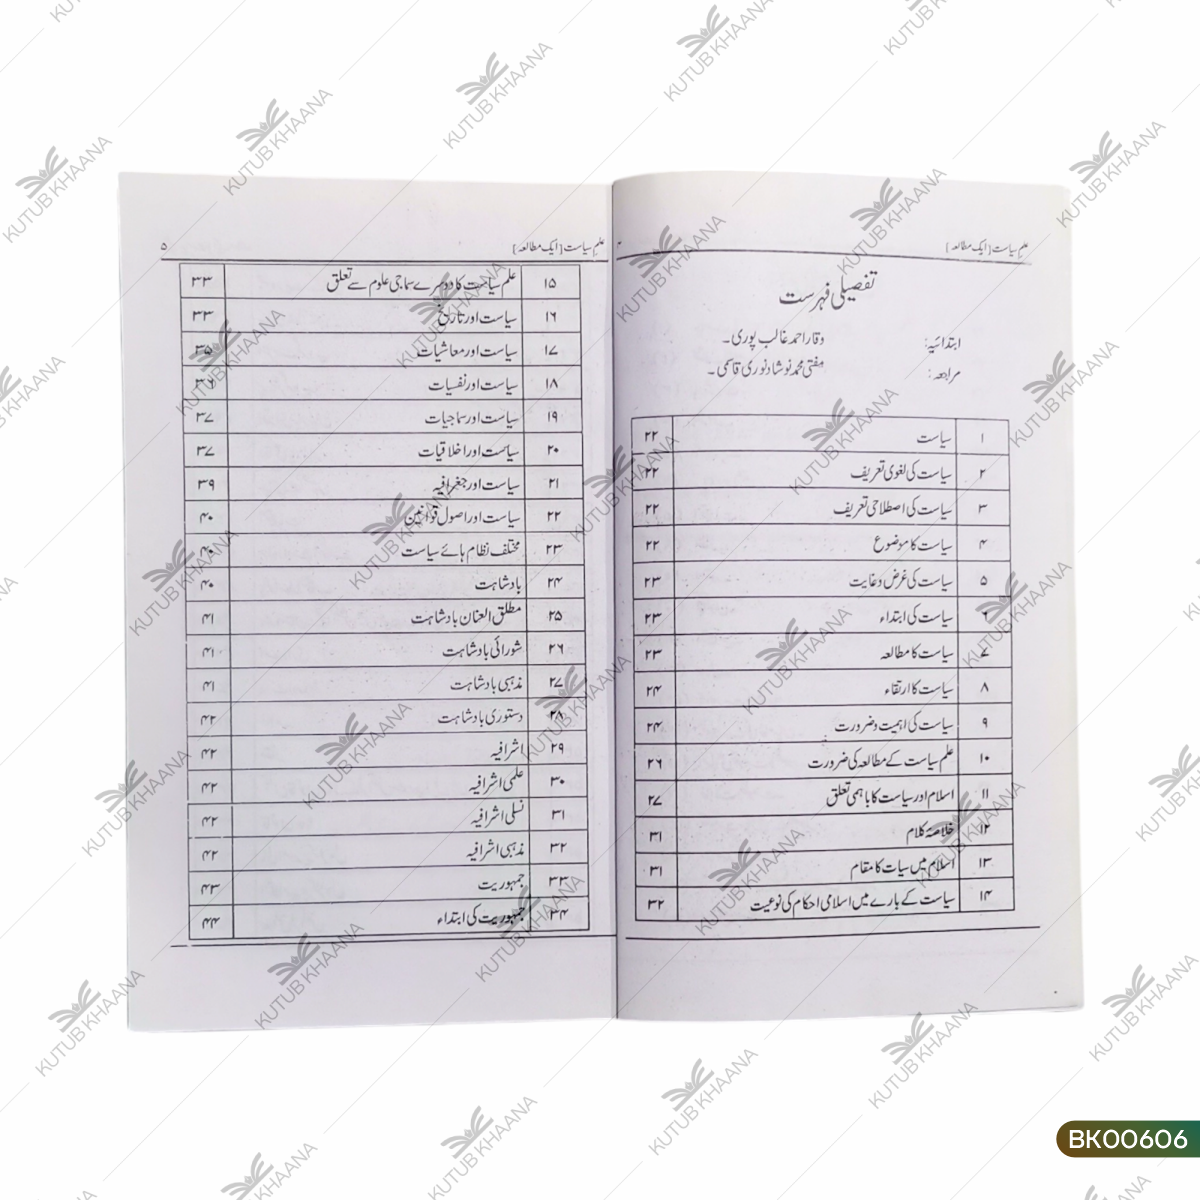 علم سیاست [ایک مطالعہ]
تفصیلی فہرست
ابتدائیہ: وقار احمد غالب پوری۔
مراجعہ: مفتی محمد نوشاد نوری قاسمی۔
۱ سیاست ۲۲
۲ سیاست کی لغوی تعریف ۲۲
۳ سیاست کی اصطلاحی تعریف ۲۲
۴ سیاست کا موضوع ۲۲
۵ سیاست کی غرض وغایت ۲۳
۶ سیاست کی ابتداء ۲۳
۷ سیاست کا مطالعہ ۲۳
۸ سیاست کا ارتقاء ۲۴
۹ سیاست کی اہمیت و ضرورت ۲۴
۱۰ علم سیاست کے مطالعہ کی ضرورت ۲۶
۱۱ اسلام اور سیاست کا باہمی تعلق ۲۷
۱۲ خلاصۂ کلام ۳۱
۱۳ اسلام میں سیات کا مقام ۳۱
۱۴ سیاست کے بارے میں اسلامی احکام کی نوعیت ۳۲
علم سیاست [ایک مطالعہ] ۵
۱۵ علم سیاست کا دوسرے سماجی علوم سے تعلق ۳۳
۱۶ سیاست اور تاریخ ۳۳
۱۷ سیاست اور معاشیات ۳۵
۱۸ سیاست اور نفسیات ۳۶
۱۹ سیاست اور سماجیات ۳۷
۲۰ سیاست اور اخلاقیات ۳۷
۲۱ سیاست اور جغرافیہ ۳۹
۲۲ سیاست اور اصول قوانین ۴۰
۲۳ مختلف نظام ہائے سیاست ۴۰
۲۴ بادشاہت ۴۰
۲۵ مطلق العنان بادشاہت ۴۱
۲۶ شورائی بادشاہت ۴۱
۲۷ مذہبی بادشاہت ۴۱
۲۸ دستوری بادشاہت ۴۲
۲۹ اشرافیہ ۴۲
۳۰ علمی اشرافیہ ۴۲
۳۱ نسلی اشرافیہ ۴۲
۳۲ مذہبی اشرافیہ ۴۲
۳۳ جمہوریت ۴۳
۳۴ جمہوریت کی ابتداء ۴۴
KUTUB KHAANA
BK00606